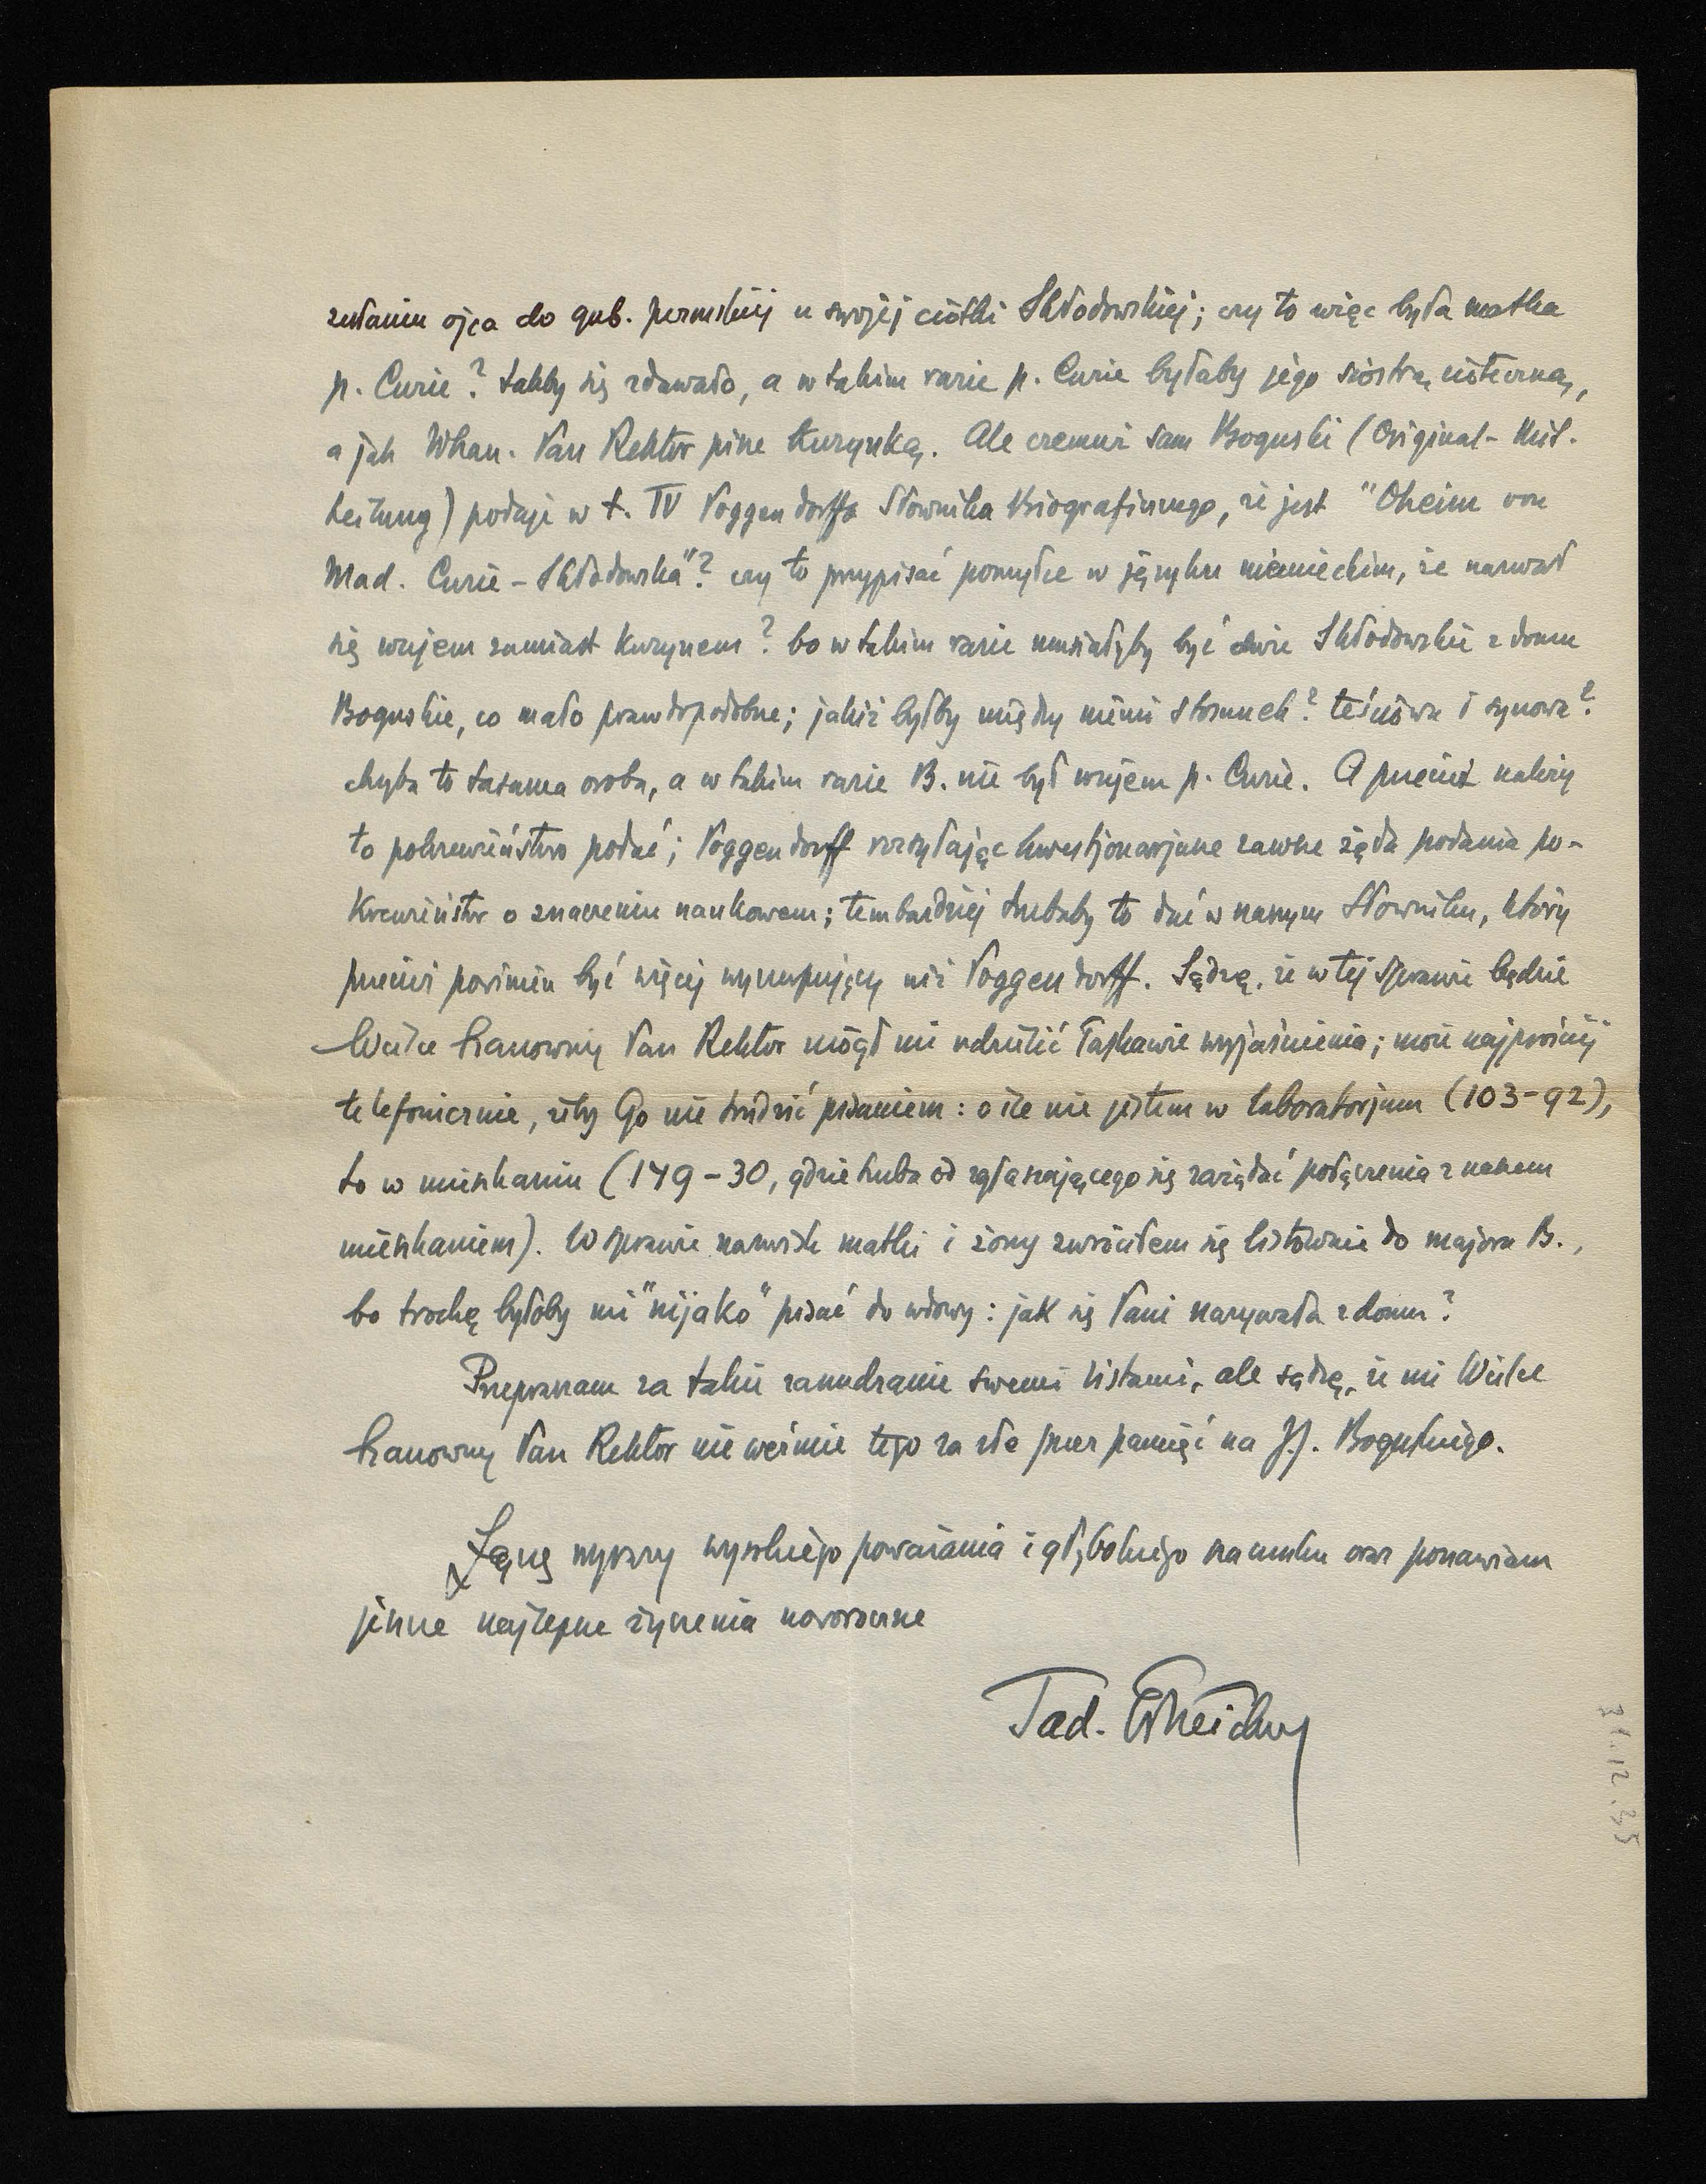 zesłaniu ojca do gub. permskiej u swojej ciotki Skłodowskiej; czy to więc była matka
p. Curie? takby się zdawało, a w takim razie p. Curie byłaby jego siostrą cioteczną,
a jak WPan. Pan Rektor pisze kuzynką. Ale czemuż sam Boguski (Original-Mit-
teilung) podaje w t. IV Poggendorffa Słownika Biograficznego, że jest "Oheim von
Mad. Curie-Skłodowska"? czy to przypisać pomyłce w języku niemieckim, że nazwał
się wujem zamiast kuzynem? bo w takim razie musiałyby być dwie Skłodowskie z domu
Boguskie, co mało prawdopodobne; jakiż byłby między niemi stosunek? teściowa i synowa?
chyba to tasama osoba, a w takim razie B. nie był wujem p. Curie. A przecież należy
to pokrewieństwo podać; Poggendorff rozsyłając kwestjonarjusze zawsze żąda podania po-
krewieństw o znaczeniu naukowem; tembardziej trzebaby to dać w naszym Słowniku, który
przecież powinien być więcej wyczerpujący niż Poggendorff. Sądzę, że w tej sprawie będzie
Wielce Szanowny Pan Rektor mógł mi udzielić łaskawie wyjaśnienia; może najprościej
telefonicznie, żeby Go nie trudzić pisaniem: o ile nie jestem w laboratorjum (103-92),
to w mieszkaniu (149-30, gdzie trzeba od zgłaszającego się zażądać połączenia z naszem
mieszkaniem). W sprawie nazwisk matki i żony zwróciłem się listownie do majora B.,
bo trochę byłoby mi "nijako" pisać do wdowy: jak się Pani nazywała z domu?
Przepraszam za takie zanudzanie swemi listami, ale sądzę, że mi Wielce
Szanowny Pan Rektor nie weźmie tego za złe przez pamięć na J.J. Boguskiego.
Łączę wyrazy wysokiego poważania i głębokiego szacunku oraz ponawiam
jeszcze najlepsze życzenia noworoczne
Tad.
31.12.35